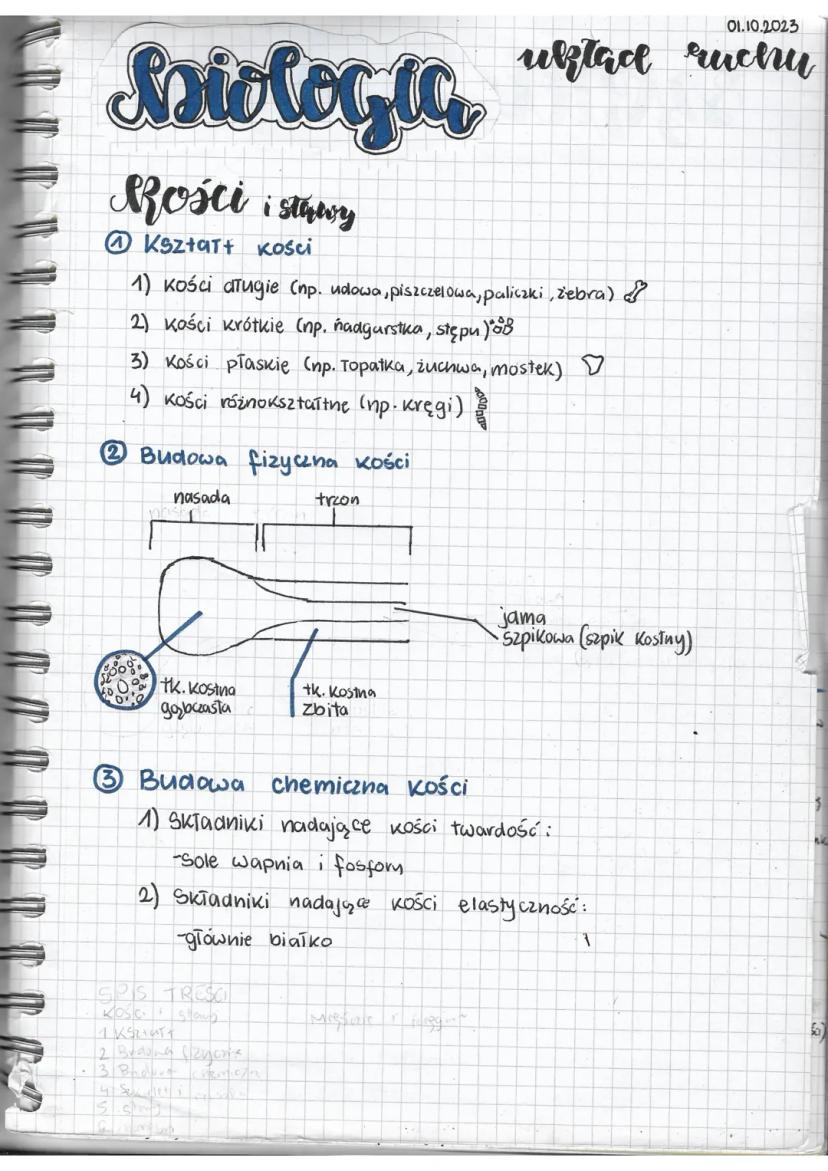 01.10.2023
biologia
układ ruchu
Kości i stawy
① Kształt kości
1) Kości długie (np. udowa, piszczelowa, paliczki, żebra)
2) Kości krótkie (np. nadgarstka, stępu)
3) Kości płaskie (np. łopatka, żuchwa, mostek)
4) Kości różnokształtne (np. kręgi)
② Budowa fizyczna kości
nasada trzon
nasada
jama
szpikowa (szpik kostny)
tk. kostna
gąbczasta
tk. kostna
zbita
③ Budowa chemiczna kości
1) Składniki nadające kości twardość:
-sole wapnia i fosforu
2) Składniki nadające kości elastyczność:
-głównie białko
SPIS TREŚCI
Kości i stawy
1 Kształt
2 Budowa fizyczna
3 Budowa chemiczna
4
5 stawy
6